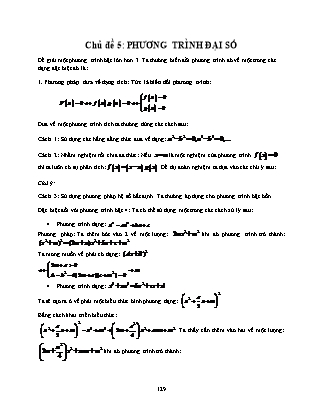 Chủ đề 5: PHƯƠNG TRÌNH ĐẠI SỐ
Để giải một phương trình bậc lớn hơn 3. Ta thường biến đổi phương trình đó về một trong các
dạng đặc biệt đó là:
1. Phương pháp đưa về dạng tích: Tức là biến đổi phương trình:
F(x)=0⇔f(x).g(x)=0⇔[f(x)=0
g(x)=0
Đưa về một phương trình tích ta thường dùng các cách sau:
Cách 1: Sử dụng các hằng đẳng thức đưa về dạng:
Cách 2: Nhẩm nghiệm rồi chia đa thức: Nếu x=a là một nghiệm của phương trình f(x)=0
thì ta luôn có sự phân tích: f(x)=(x-a)g(x). Để dự đoán nghiệm ta dựa vào các chú ý sau:
Chú ý:
Cách 3: Sử dụng phương pháp hệ số bất định. Ta thường áp dụng cho phương trình bậc bốn
Đặc biệt đối với phương trình bậc 4: Ta có thể sử dụng một trong các cách xử lý sau:
• Phương trình dạng: x⁴=ax²+bx+c
Phương pháp: Ta thêm bớt vào 2 vế một lượng: 2mx²+m² khi đó phương trình trở thành:
(x²+m)²=(2m+a)x²+bx+c+m²
Ta mong muốn vế phải có dạng: (Ax+B)²
• Phương trình dạng:
Ta sẽ tạo ra ở vế phải một biểu thức bình phương dạng: (x²+a/2x+m)²
Bằng cách khai triển biểu thức:
Ta thấy cần thêm vào hai vế một lượng:
khi đó phương trình trở thành:
129